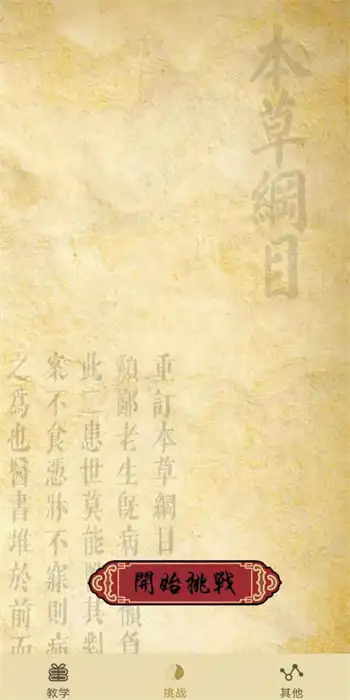 本草綱目
重訂本草綱目
類鄙老生既病
此二患世莫能
其
案不食憑牀不寐則病
之為也醫書堆於前而
開始挑戰
教学
挑战
其他